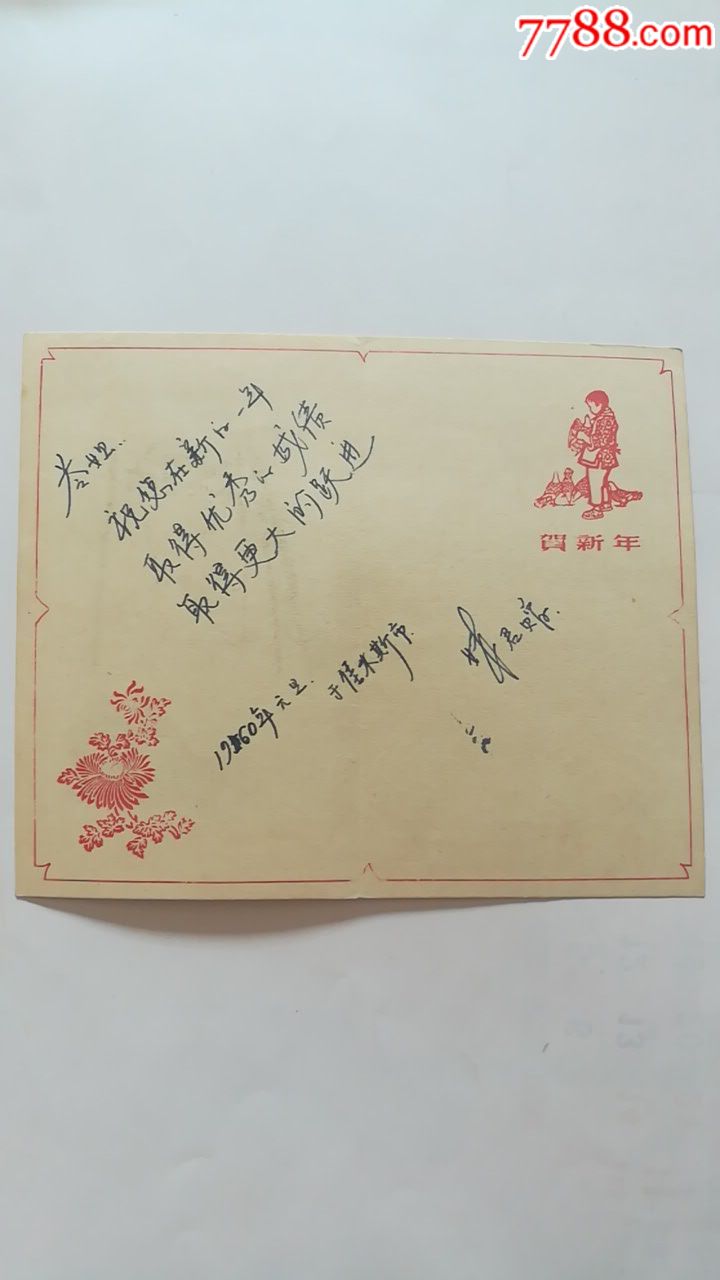 7788.com
祝您在新的一年
取得优秀的成绩
取得更大的跃进
賀新年
1960年元旦.
于佳木斯市.